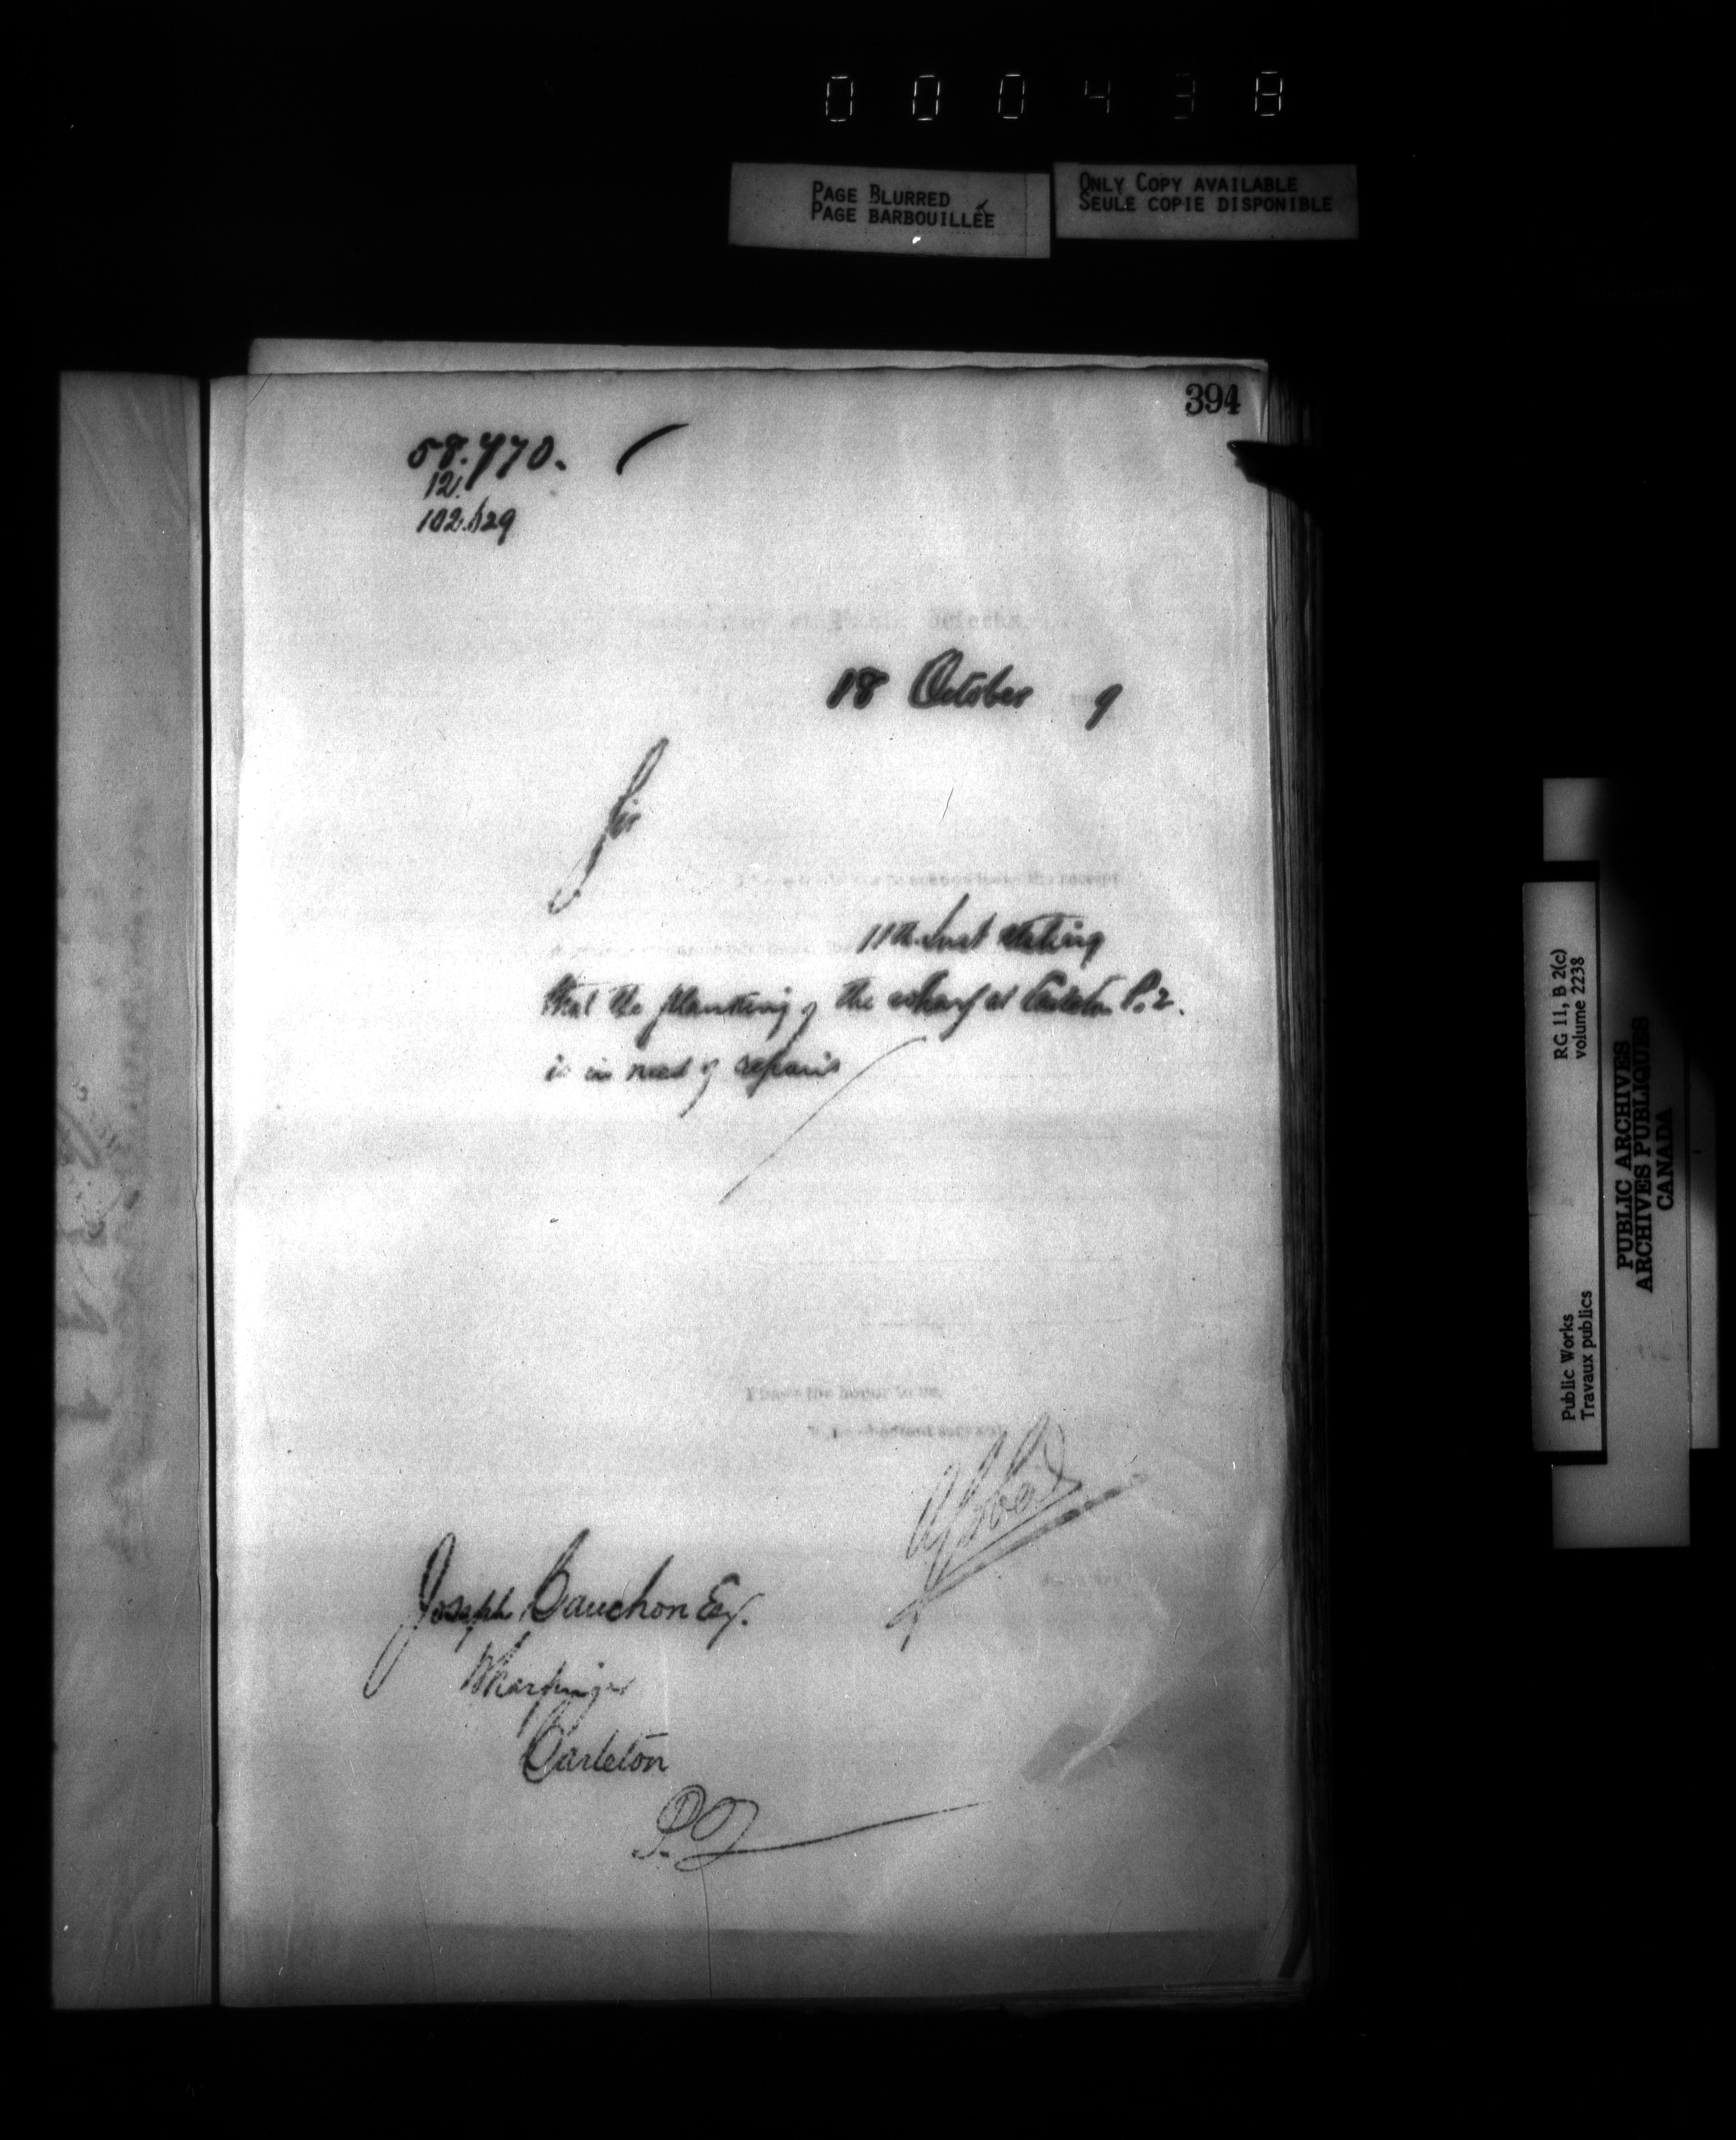 000438
PAGE BLURRED
PAGE BARBOUILLÉE
ONLY COPY AVAILABLE
SEULE COPIE DISPONIBLE
394
58.770.
12.
18 October 9
Sir
11th Inst stating
that the planking of the wharf at Carleton P.2.
is in need of repairs
I have the honor to be,
obedient servant
Joseph Cauchon Esq.
Wharfinger
Carleton
P.Q
RG 11, B 2(c)
volume 2238
Public Works
Travaux publics
PUBLIC ARCHIVES
ARCHIVES PUBLIQUES
CANADA